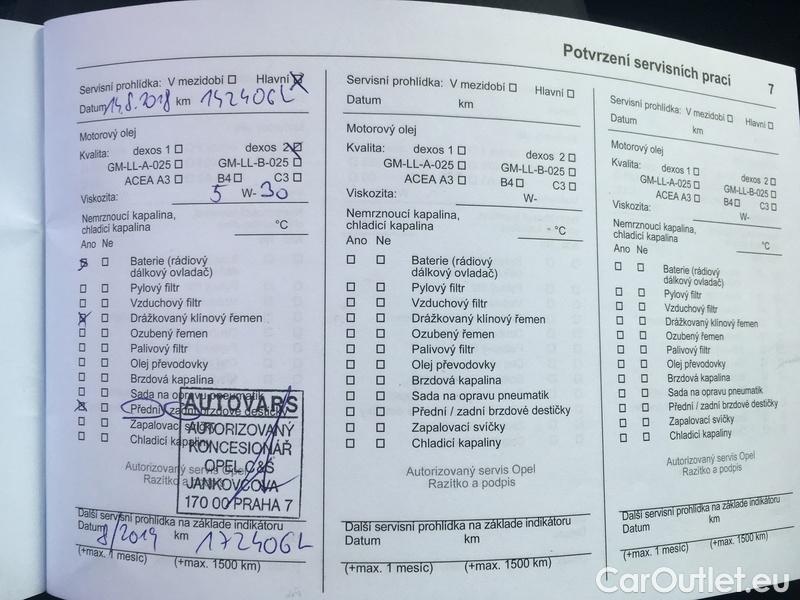 Potvrzení servisních prací 7
Servisní prohlídka: V mezidobí Hlavní
Datum 14.8.2018 km 142406L
Motorový olej
Kvalita: dexos 1 dexos 2
GM-LL-A-025 GM-LL-B-025
ACEA A3 B4 C3
Viskozita: 5 W- 30
Nemrznoucí kapalina,
chladicí kapalina °C
Ano Ne
Baterie (rádiový
dálkový ovladač)
Pylový filtr
Vzduchový filtr
Drážkovaný klínový řemen
Ozubený řemen
Palivový filtr
Olej převodovky
Brzdová kapalina
Sada na opravu pneumatik
Přední / zadní brzdové destičky
Zapalovací svíčky
Chladicí kapaliny
Autorizovaný servis Opel
Razítko a podpis
AUTOVARS
AUTORIZOVANÝ
KONCESIONÁŘ
OPEL C&S
JANKOVCOVA
170 00 PRAHA 7
Další servisní prohlídka na základě indikátoru
Datum 8/2019 km 172406L
(+max. 1 měsíc) (+max. 1500 km)
Servisní prohlídka: V mezidobí Hlavní
Datum km
Motorový olej
Kvalita: dexos 1 dexos 2
GM-LL-A-025 GM-LL-B-025
ACEA A3 B4 C3
Viskozita: W-
Nemrznoucí kapalina,
chladicí kapalina - °C
Ano Ne
Baterie (rádiový
dálkový ovladač)
Pylový filtr
Vzduchový filtr
Drážkovaný klínový řemen
Ozubený řemen
Palivový filtr
Olej převodovky
Brzdová kapalina
Sada na opravu pneumatik
Přední / zadní brzdové destičky
Zapalovací svíčky
Chladicí kapaliny
Autorizovaný servis Opel
Razítko a podpis
Další servisní prohlídka na základě indikátoru
Datum km
(+max. 1 měsíc) (+max. 1500 km)
Servisní prohlídka: V mezidobí Hlavní
Datum km
Motorový olej
Kvalita: dexos 1 dexos 2
GM-LL-A-025 GM-LL-B-025
ACEA A3 B4 C3
Viskozita: W-
Nemrznoucí kapalina,
chladicí kapalina °C
Ano Ne
Baterie (rádiový
dálkový ovladač)
Pylový filtr
Vzduchový filtr
Drážkovaný klínový řemen
Ozubený řemen
Palivový filtr
Olej převodovky
Brzdová kapalina
Sada na opravu pneumatik
Přední / zadní brzdové destičky
Zapalovací svíčky
Chladicí kapaliny
Autorizovaný servis Opel
Razítko a podpis
Další servisní prohlídka na základě indikátoru
Datum km
(+max. 1 měsíc) (+max. 1500 km)
CarOutlet.eu